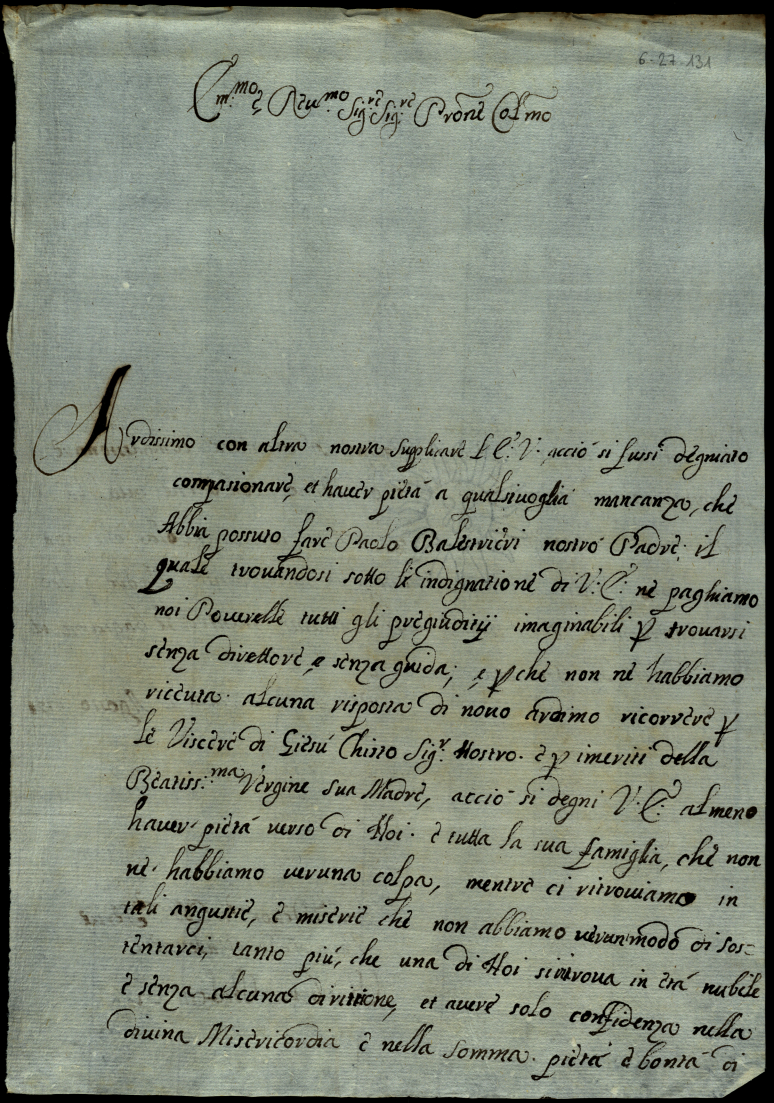 6-27-131
Em.mo e Reu.mo Sig.re Sig.re Prone Col.mo
Ardissimo con altra nostra supplicare L'E.V. acciò si fussi degniato
compasionare, et hauer pietà a qualsiuoglia mancanza, che
Abbia possuto fare Paolo Balestrieri nostro Padre; il
quale trouandosi sotto li indignatione di V.E. ne paghiamo
noi Pouerelle tutti gli pregiuditij imaginabili p trouarsi
senza direttore, e senza guida; e pche non ne habbiamo
riceuta alcuna risposta di nouo ardimo ricorrere p
le Viscere di Giesù Christo Sig.r Nostro. e p i meriti della
Beatiss.ma Vergine sua Madre, acciò si degni V.E. almeno
hauer pietà verso di Noi. e tutta la sua famiglia, che non
ne habbiamo ueruna colpa, mentre ci ritrouiamo in
tali angustie, e miserie che non abbiamo uerun modo di sos=
tentarci, tanto più, che una di Noi si ritroua in età nubile
e senza alcuna diritione, et auere solo confidenza nella
diuina Misericordia e nella somma pietà e bontà di